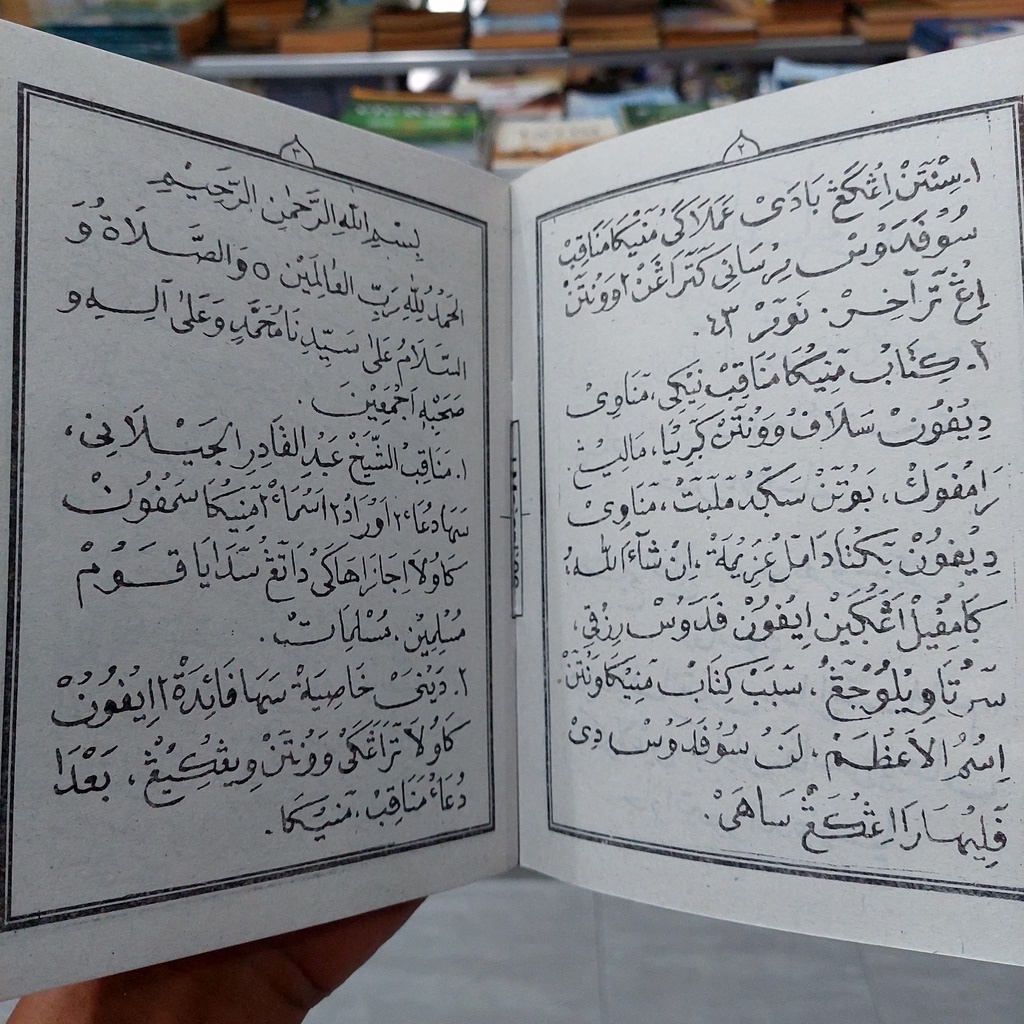 ٢
١. سِنْتَنْ اِڠْكَڠْ بَادَىْ عَمَلَاكَىْ مَنِيْكَا مَنَاقِبْ
سُوْفَدَوْسْ مِرْسَانِيْ كَتَرَاڠَنْ٢ وَوْنْتَنْ
اِڠْ تَرْآخِرْ. نَوْمَرْ ٤٣.
٢. كِتَابْ مَنِيْكَا مَنَاقِبْ نِيْكِيْ، مَنَاوِىْ
دِيْفُوْنْ سَلَافْ وَوْنْتَنْ كَرِيْيَا، مَالِيْڠْ.
رَامْفَوْكْ، بَوْتَنْ سَكَݢَدْ مْلَبَتْ، مَنَاوِىْ
دِيْفُوْنْ بَكْتَا دَامَلْ عَزِيْمَةْ، اِنْ شَآءَ اللهُ؛
كَامْفِيْلْ اَڠْݢَيْنْ اِيْفُوْنْ فَدَوْسْ رِزْقِيْ،
سَرْتَا وِيْلُوْجَڠْ، سَبَبْ كِتَابْ مَنِيْكَا وَنْتَنْ
اِسْمُ الْاَعْظَمْ، لَنْ سُوْفَدَوْسْ دِىْ
فَلِيْهَارَا اِڠْكَڠْ سَاهَىْ.
٣
بِسْمِ اللهِ الرَّحْمٰنِ الرَّحِيْمِ
اَلْحَمْدُ لِلّٰهِ رَبِّ الْعَالَمِيْنَ ٥ وَالصَّلَاةُ وَ
السَّلَامُ عَلَىٰ سَيِّدِنَا مُحَمَّدٍ وَعَلَىٰ آلِهِ وَ
صَحْبِهِ اَجْمَعِيْنَ.
١. مَنَاقِبُ الشَّيْخْ عَبْدِ الْقَادِرِ الْجَيْلَانِيْ،
سَهَا دُعَاء٢ اَوْرَاد٢ اَسْمَاء٢ مَنِيْكَا سَمْفُوْنْ
كَاوُلَا اِجَازَاهَاكَىْ دَاتَڠْ سَدَايَا قَوْمْ
مُسْلِمِيْنْ، مُسْلِمَاتْ.
٢. دَيْنَىْ خَاصِيَةْ سَهَا فَائِدَةْ٢ اِيْفُوْنْ
كَاوُلَا تَرَاڠَكَىْ وَوْنْتَنْ وِيْڠْكِيْڠْ، بَعْدَا
دُعَاءْ مَنَاقِبْ، مَنِيْكَا.